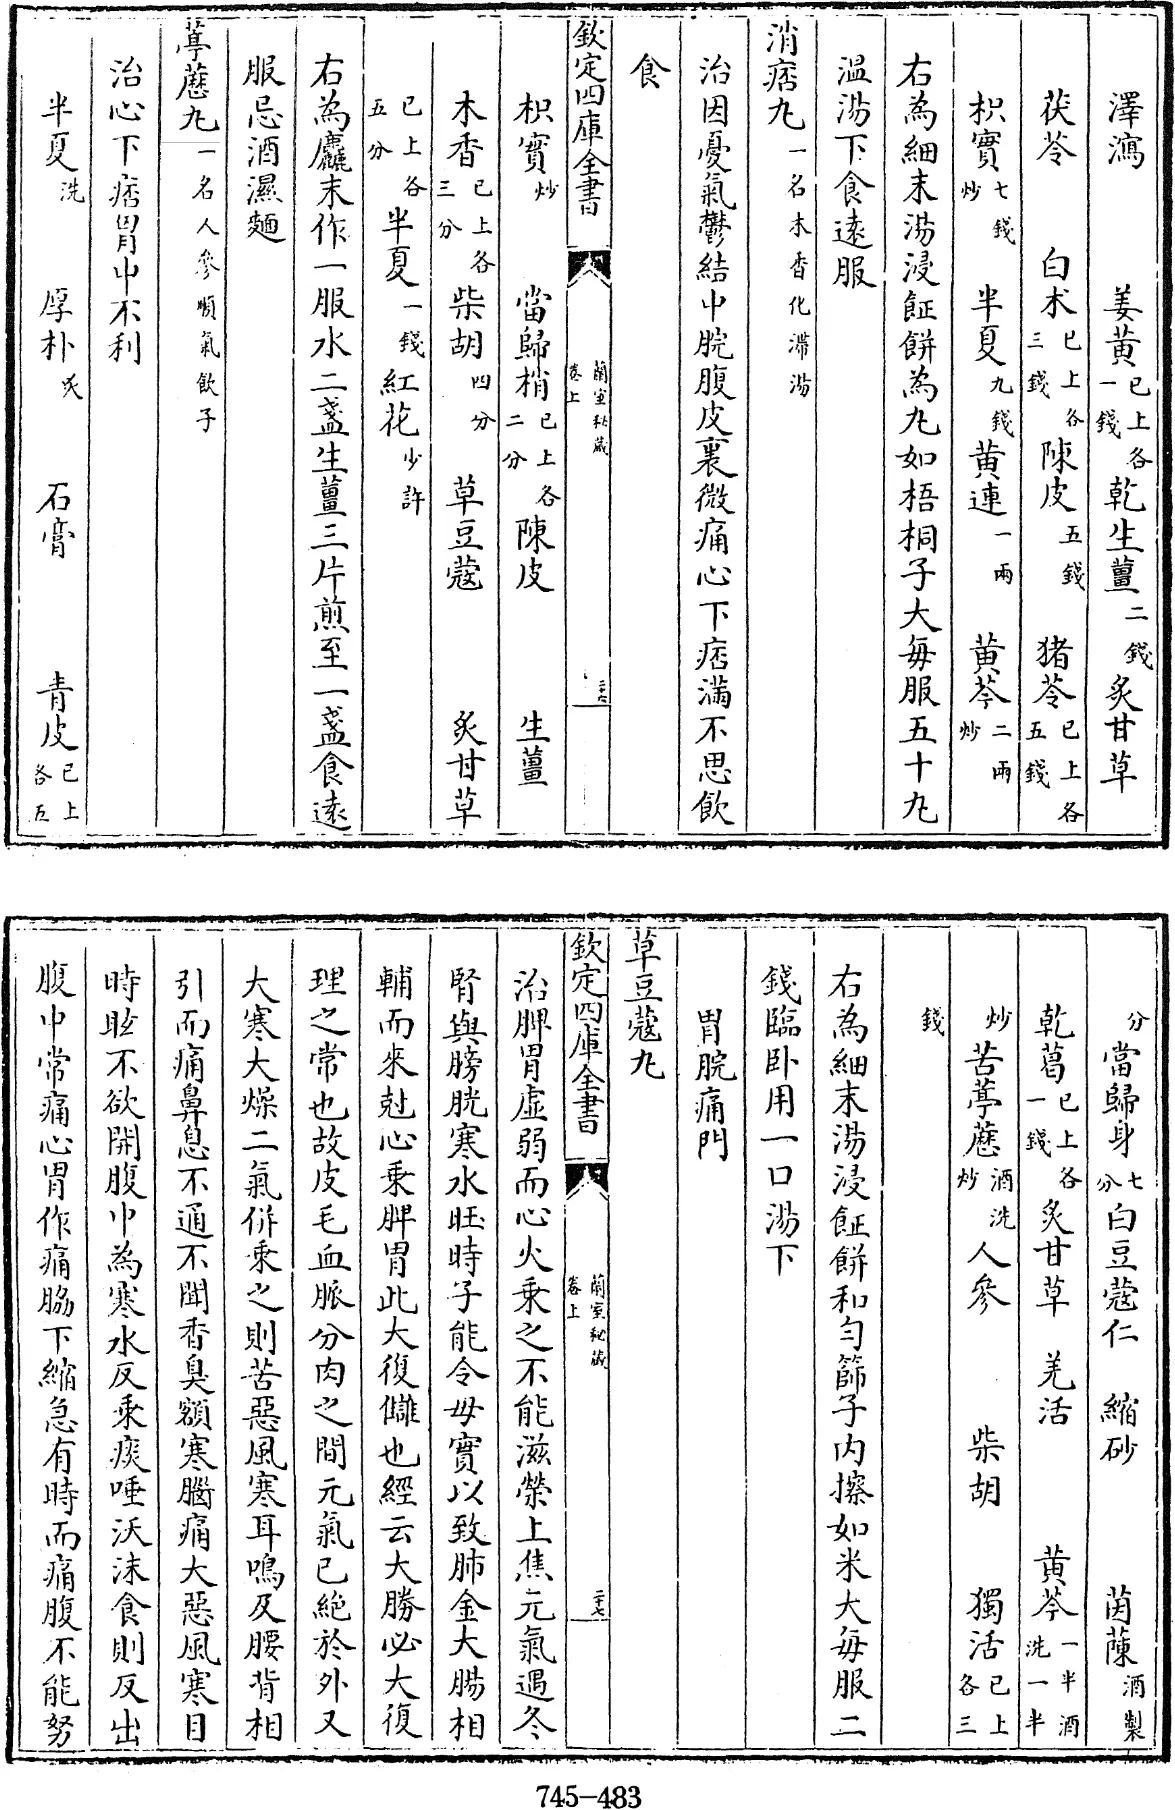 澤瀉 姜黄已上各一錢 乾生薑二錢 炙甘草
茯苓 白术已上各三錢 陳皮五錢 猪苓已上各五錢
枳實七錢炒 半夏九錢 黄連一兩 黄芩二兩炒
右為細末湯浸𩚫餅為丸如梧桐子大每服五十丸
温湯下食遠服
消痞丸一名木香化滯湯
治因憂氣鬱結中脘腹皮裏微痛心下痞滿不思飲
食
欽定四庫全書 蘭室秘藏卷上 二十六
枳實炒 當歸梢已上各二分 陳皮 生薑
木香已上各三分 柴胡四分 草豆蔲 炙甘草
已上各五分 半夏一錢 紅花少許
右為麤末作一服水二盞生薑三片煎至一盞食遠
服忌酒濕麵
葶藶丸一名人參順氣飲子
治心下痞胃中不利
半夏洗 厚朴炙 石膏 青皮已上各五
分 當歸身七分 白豆蔲仁 縮砂 茵蔯酒製
乾葛已上各一錢 炙甘草 羌活 黄芩一半酒洗一半
炒 苦葶藶酒洗炒 人參 柴胡 獨活已上各三
錢
右為細末湯浸𩚫餅和匀篩子内擦如米大每服二
錢臨卧用一口湯下
胃脘痛門
草豆蔲丸
欽定四庫全書 蘭室秘藏卷上 二十七
治脾胃虚弱而心火乘之不能滋榮上焦元氣遇冬
腎與膀胱寒水旺時子能令母實以致肺金大腸相
輔而來尅心乘脾胃此大復讎也經云大勝必大復
理之常也故皮毛血脈分肉之間元氣已絶於外又
大寒大燥二氣併乘之則苦惡風寒耳鳴及腰背相
引而痛鼻息不通不聞香臭額寒腦痛大惡風寒目
時眩不欲開腹中為寒水反乘痰唾沃沫食則反出
腹中常痛心胃作痛脇下縮急有時而痛腹不能努
745-483